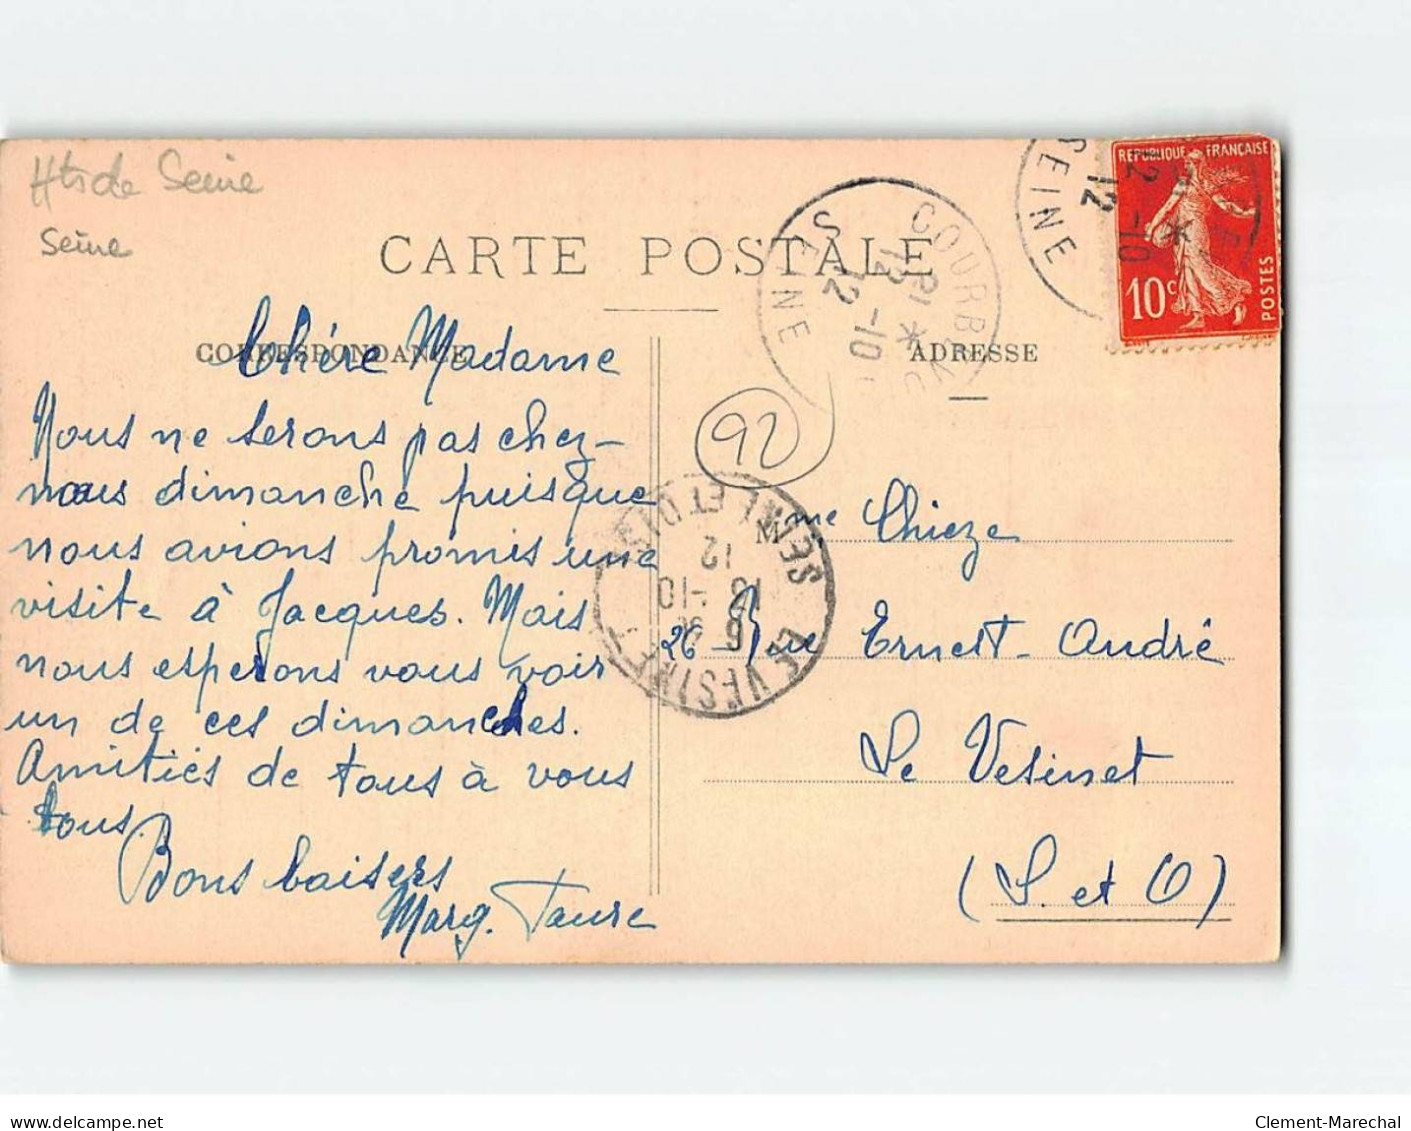 Hts de Seine
Seine
CARTE POSTALE
CORRESPONDANCE
ADRESSE
REPUBLIQUE FRANÇAISE
10c
POSTES
SEINE
12 -10
12
COURBEVOIE
SEINE
12 -10
12
92
Chére Madame
Nous ne serons pas chez-
nous dimanche puisque
nous avions promis une
visite à Jacques. Mais
nous esperons vous voir
un de ces dimanches.
Amitiés de tous à vous
tous.
Bons baisers
Marg. Faure
LE VESINET
SEINE ET OISE
12
-10
12
Mme Chieze
26 Rue Ernest-André
Le Vesinet
(S. et O)
delcampe.net
Clement-Marechal